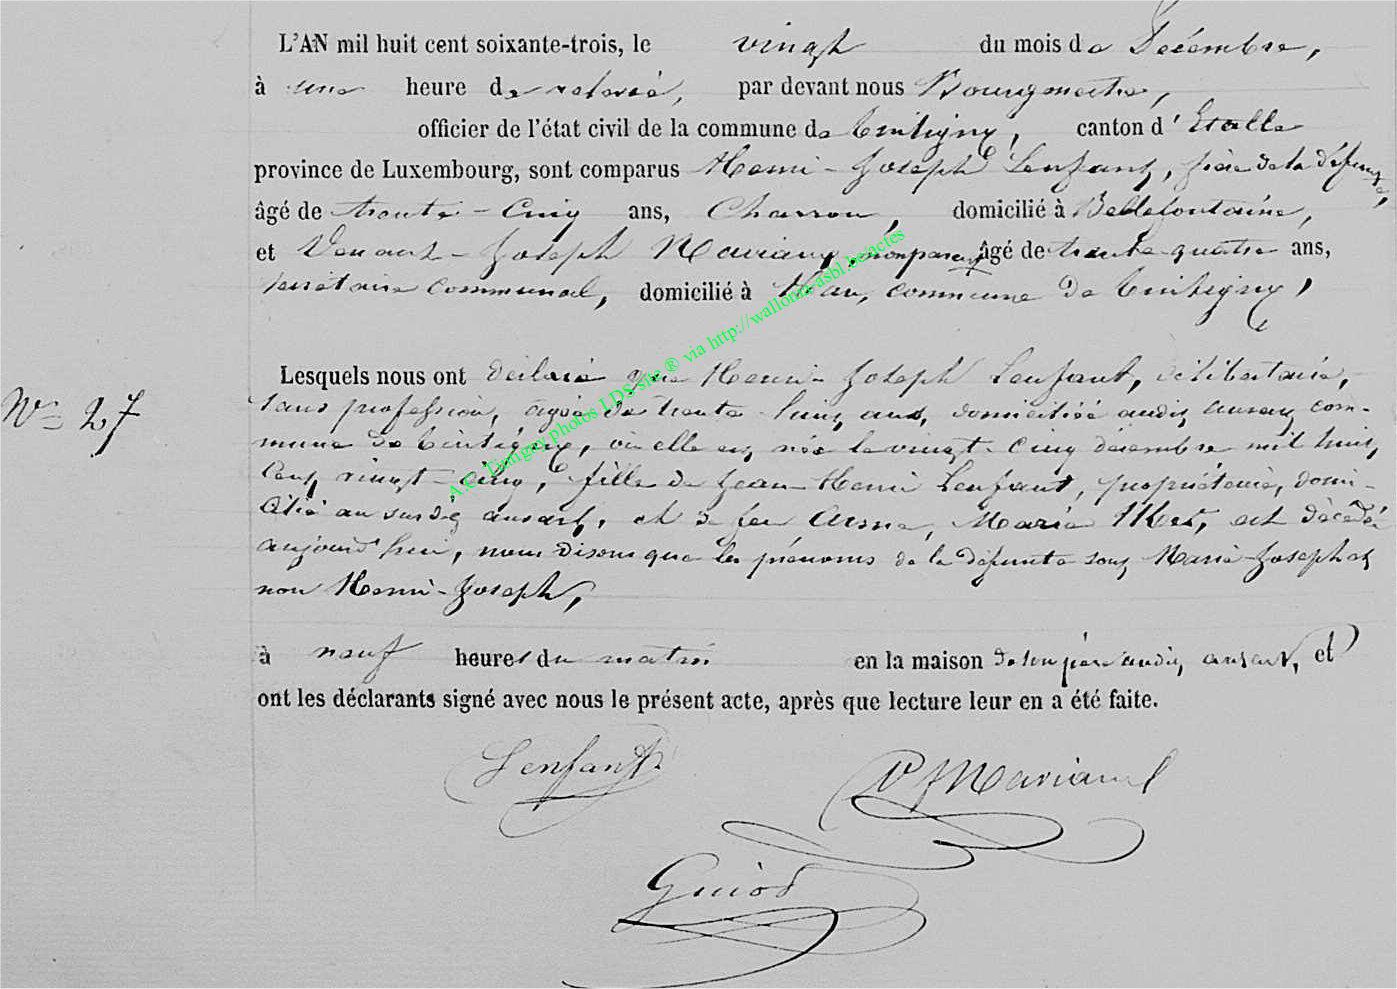 L'AN mil huit cent soixante-trois, le vingt du mois de Décembre,
à une heure de relevée, par devant nous Bourgmestre,
officier de l'état civil de la commune de Tintigny, canton d'Etalle
province de Luxembourg, sont comparus Henri-Joseph Lenfant, frère de la défunte,
âgé de trente-cinq ans, Charron, domicilié à Bellefontaine,
et Venant-Joseph Maviaux, non parent âgé de trente quatre ans,
secrétaire communal, domicilié à Han, commune de Tintigny,
Lesquels nous ont déclaré que Henri-Joseph Lenfant, célibataire,
N° 27
sans profession, agée de trente-huit ans, domiciliée audit ansart, com-
mune de Tintigny, où elle est née le vingt-cinq décembre mil huit
cent vingt-cinq, fille de Jean-Henri Lenfant, propriétaire, domi-
cilié au susdit ansart, et de feu Anne, Marie, est décédée
aujourd'hui, nous disons que les prénoms de la défunte sont Marie-Joseph et
non Henri-Joseph,
à neuf heures du matin en la maison de son père audit ansart, et
ont les déclarants signé avec nous le présent acte, après que lecture leur en a été faite.
Lenfant
Guiot
A.C. Tintigny photos LDS-site ® via http://wallonia-asbl.be/actes